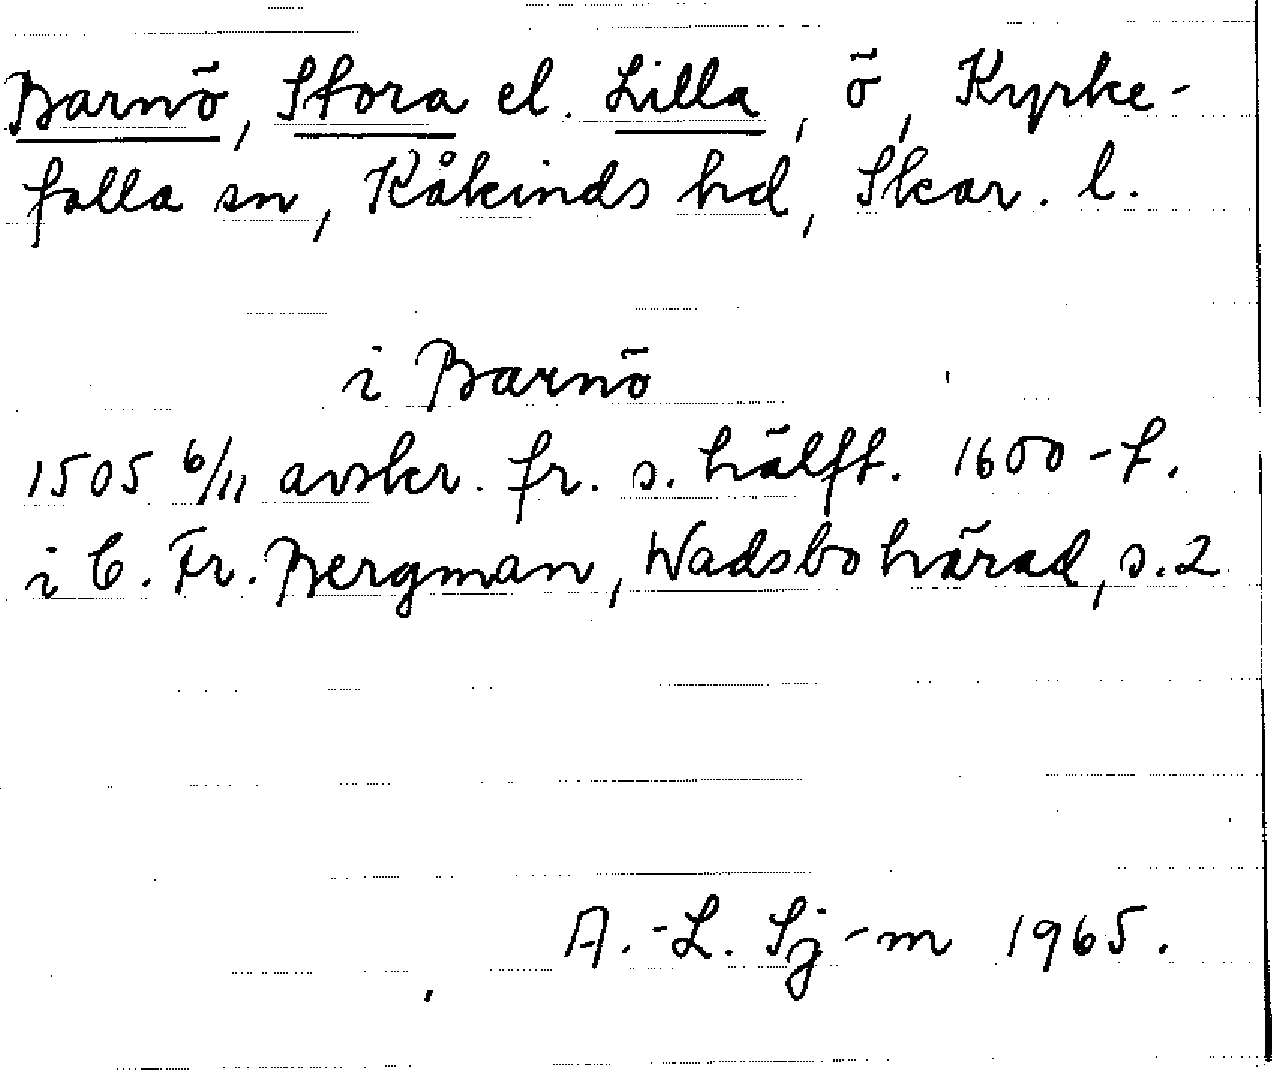 Barnö, Stora el. Lilla, ö, Kyrke-
falla sn, Kåkinds hd, Skar. l.
i Barnö
1505 6/11 avskr. fr. s. hälft. 1600-t.
i C. Fr. Bergman, Wadsbo härad, s. 2
A.-L. Sj-m 1965.